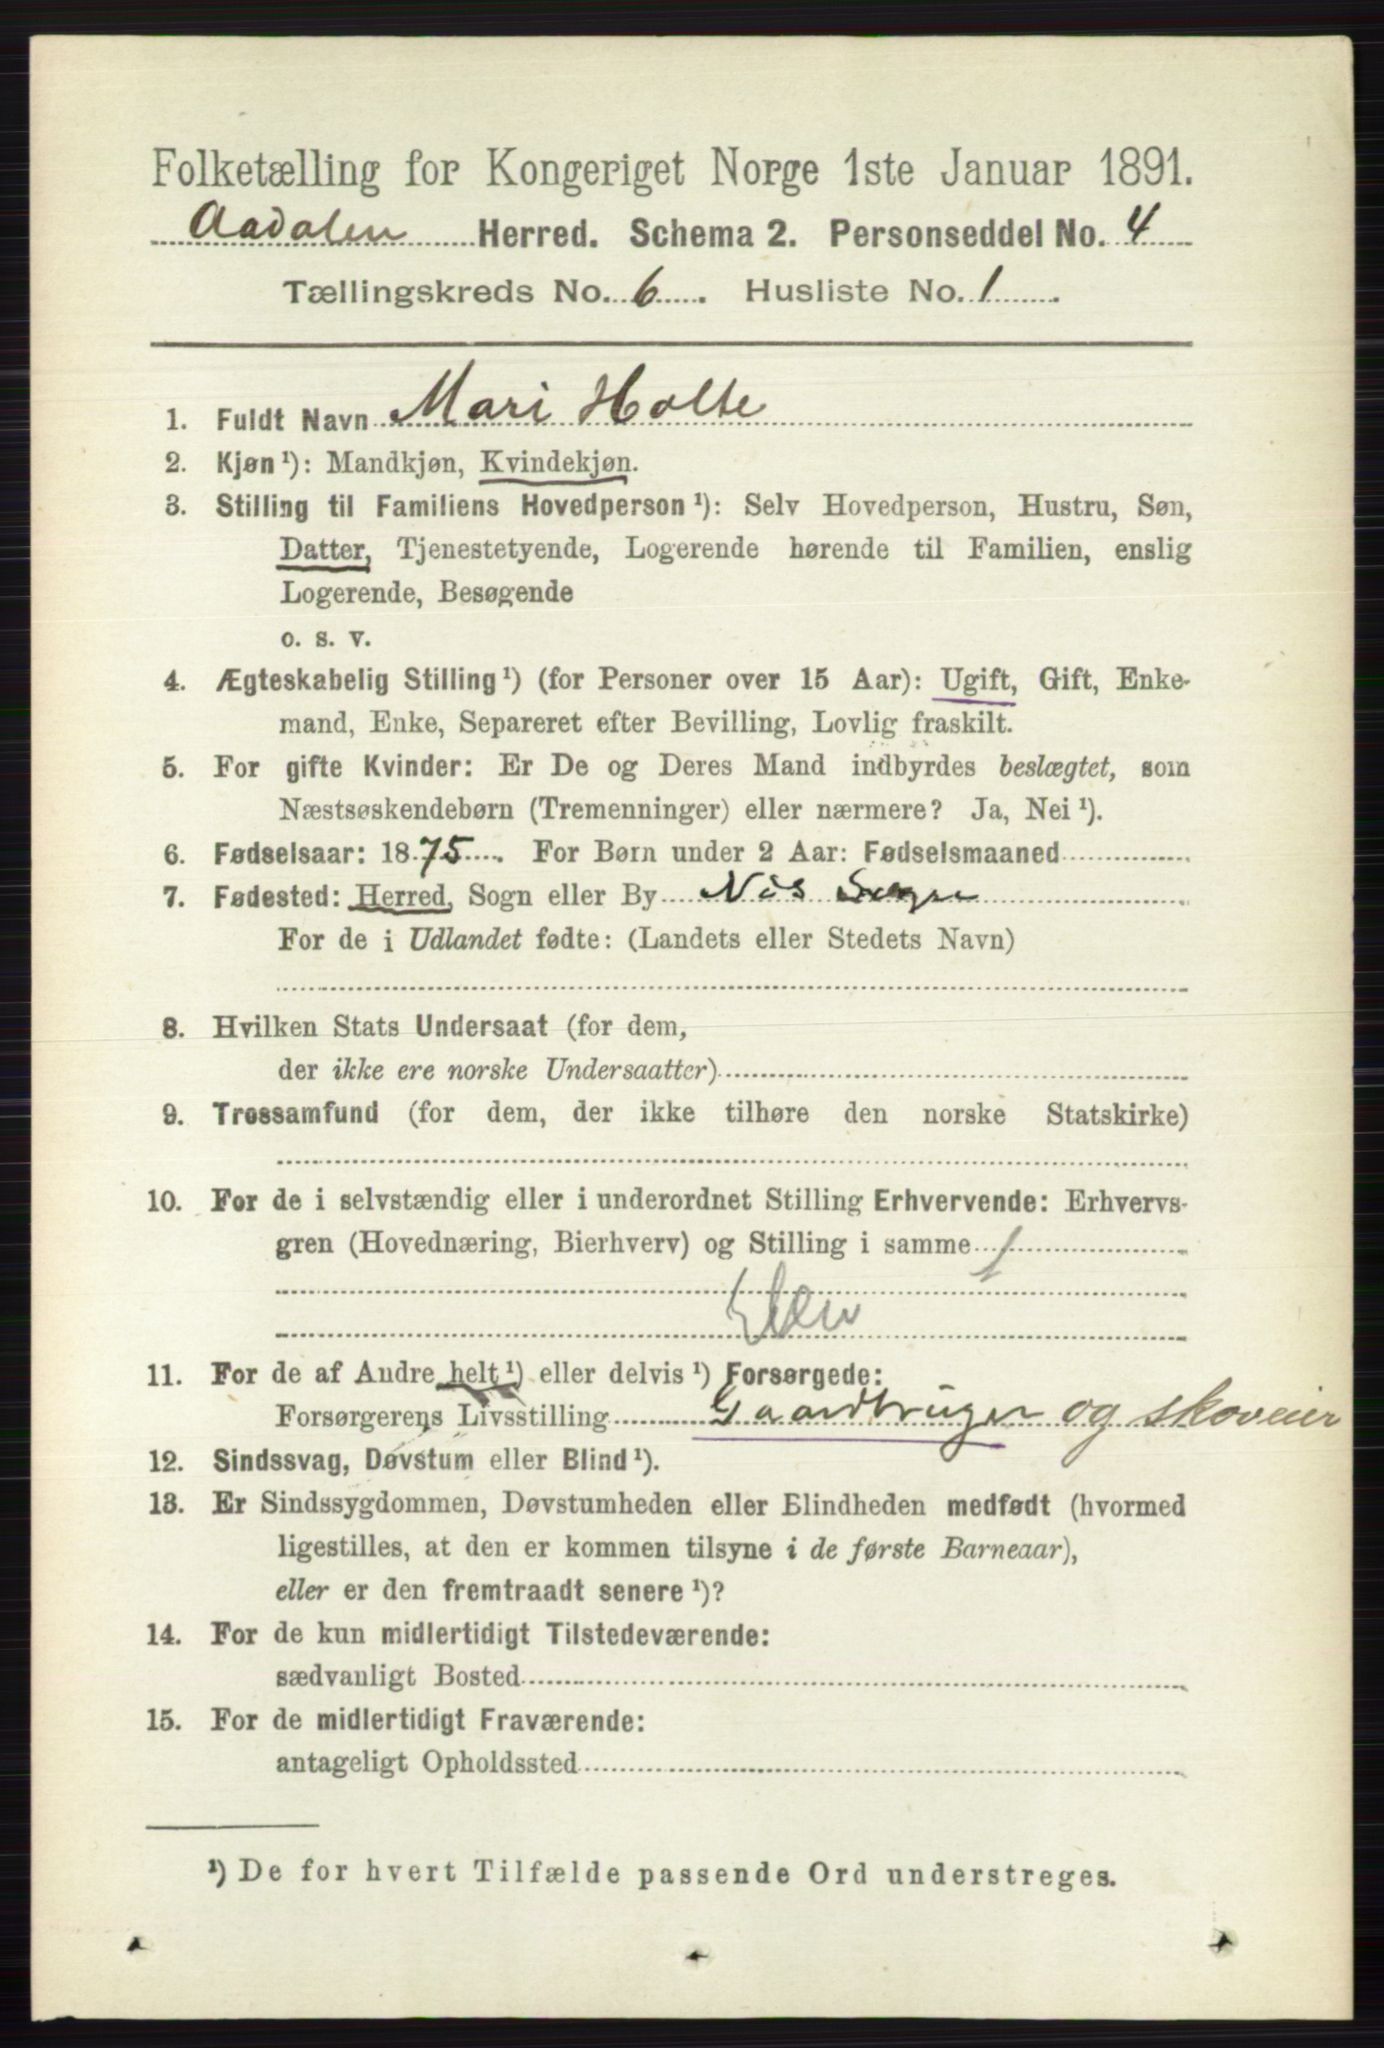 Folketælling for Kongeriget Norge 1ste Januar 1891.
Aadalen Herred. Schema 2. Personseddel No. 4
Tællingskreds No. 6. Husliste No. 1.
1. Fuldt Navn Mari Holte
2. Kjøn¹): Mandkjøn, Kvindekjøn.
3. Stilling til Familiens Hovedperson¹): Selv Hovedperson, Hustru, Søn,
Datter, Tjenestetyende, Logerende hørende til Familien, enslig
Logerende, Besøgende
o. s. v.
4. Ægteskabelig Stilling¹) (for Personer over 15 Aar): Ugift, Gift, Enke-
mand, Enke, Separeret efter Bevilling, Lovlig fraskilt.
5. For gifte Kvinder: Er De og Deres Mand indbyrdes beslægtet, som
Næstsøskendebørn (Tremenninger) eller nærmere? Ja, Nei¹).
6. Fødselsaar: 1875. For Børn under 2 Aar: Fødselsmaaned
7. Fødested: Herred, Sogn eller By Næs
For de i Udlandet fødte: (Landets eller Stedets Navn)
8. Hvilken Stats Undersaat (for dem,
der ikke ere norske Undersaatter)
9. Trossamfund (for dem, der ikke tilhøre den norske Statskirke)
10. For de i selvstændig eller i underordnet Stilling Erhvervende: Erhvervs-
gren (Hovednæring, Bierhverv) og Stilling i samme
Elev
11. For de af Andre helt¹) eller delvis¹) Forsørgede:
Forsørgerens Livsstilling Gaardbruger og skoveier
12. Sindssvag, Døvstum eller Blind¹).
13. Er Sindssygdommen, Døvstumheden eller Blindheden medfødt (hvormed
ligestilles, at den er kommen tilsyne i de første Barneaar),
eller er den fremtraadt senere¹)?
14. For de kun midlertidigt Tilstedeværende:
sædvanligt Bosted
15. For de midlertidigt Fraværende:
antageligt Opholdssted
¹) De for hvert Tilfælde passende Ord understreges.